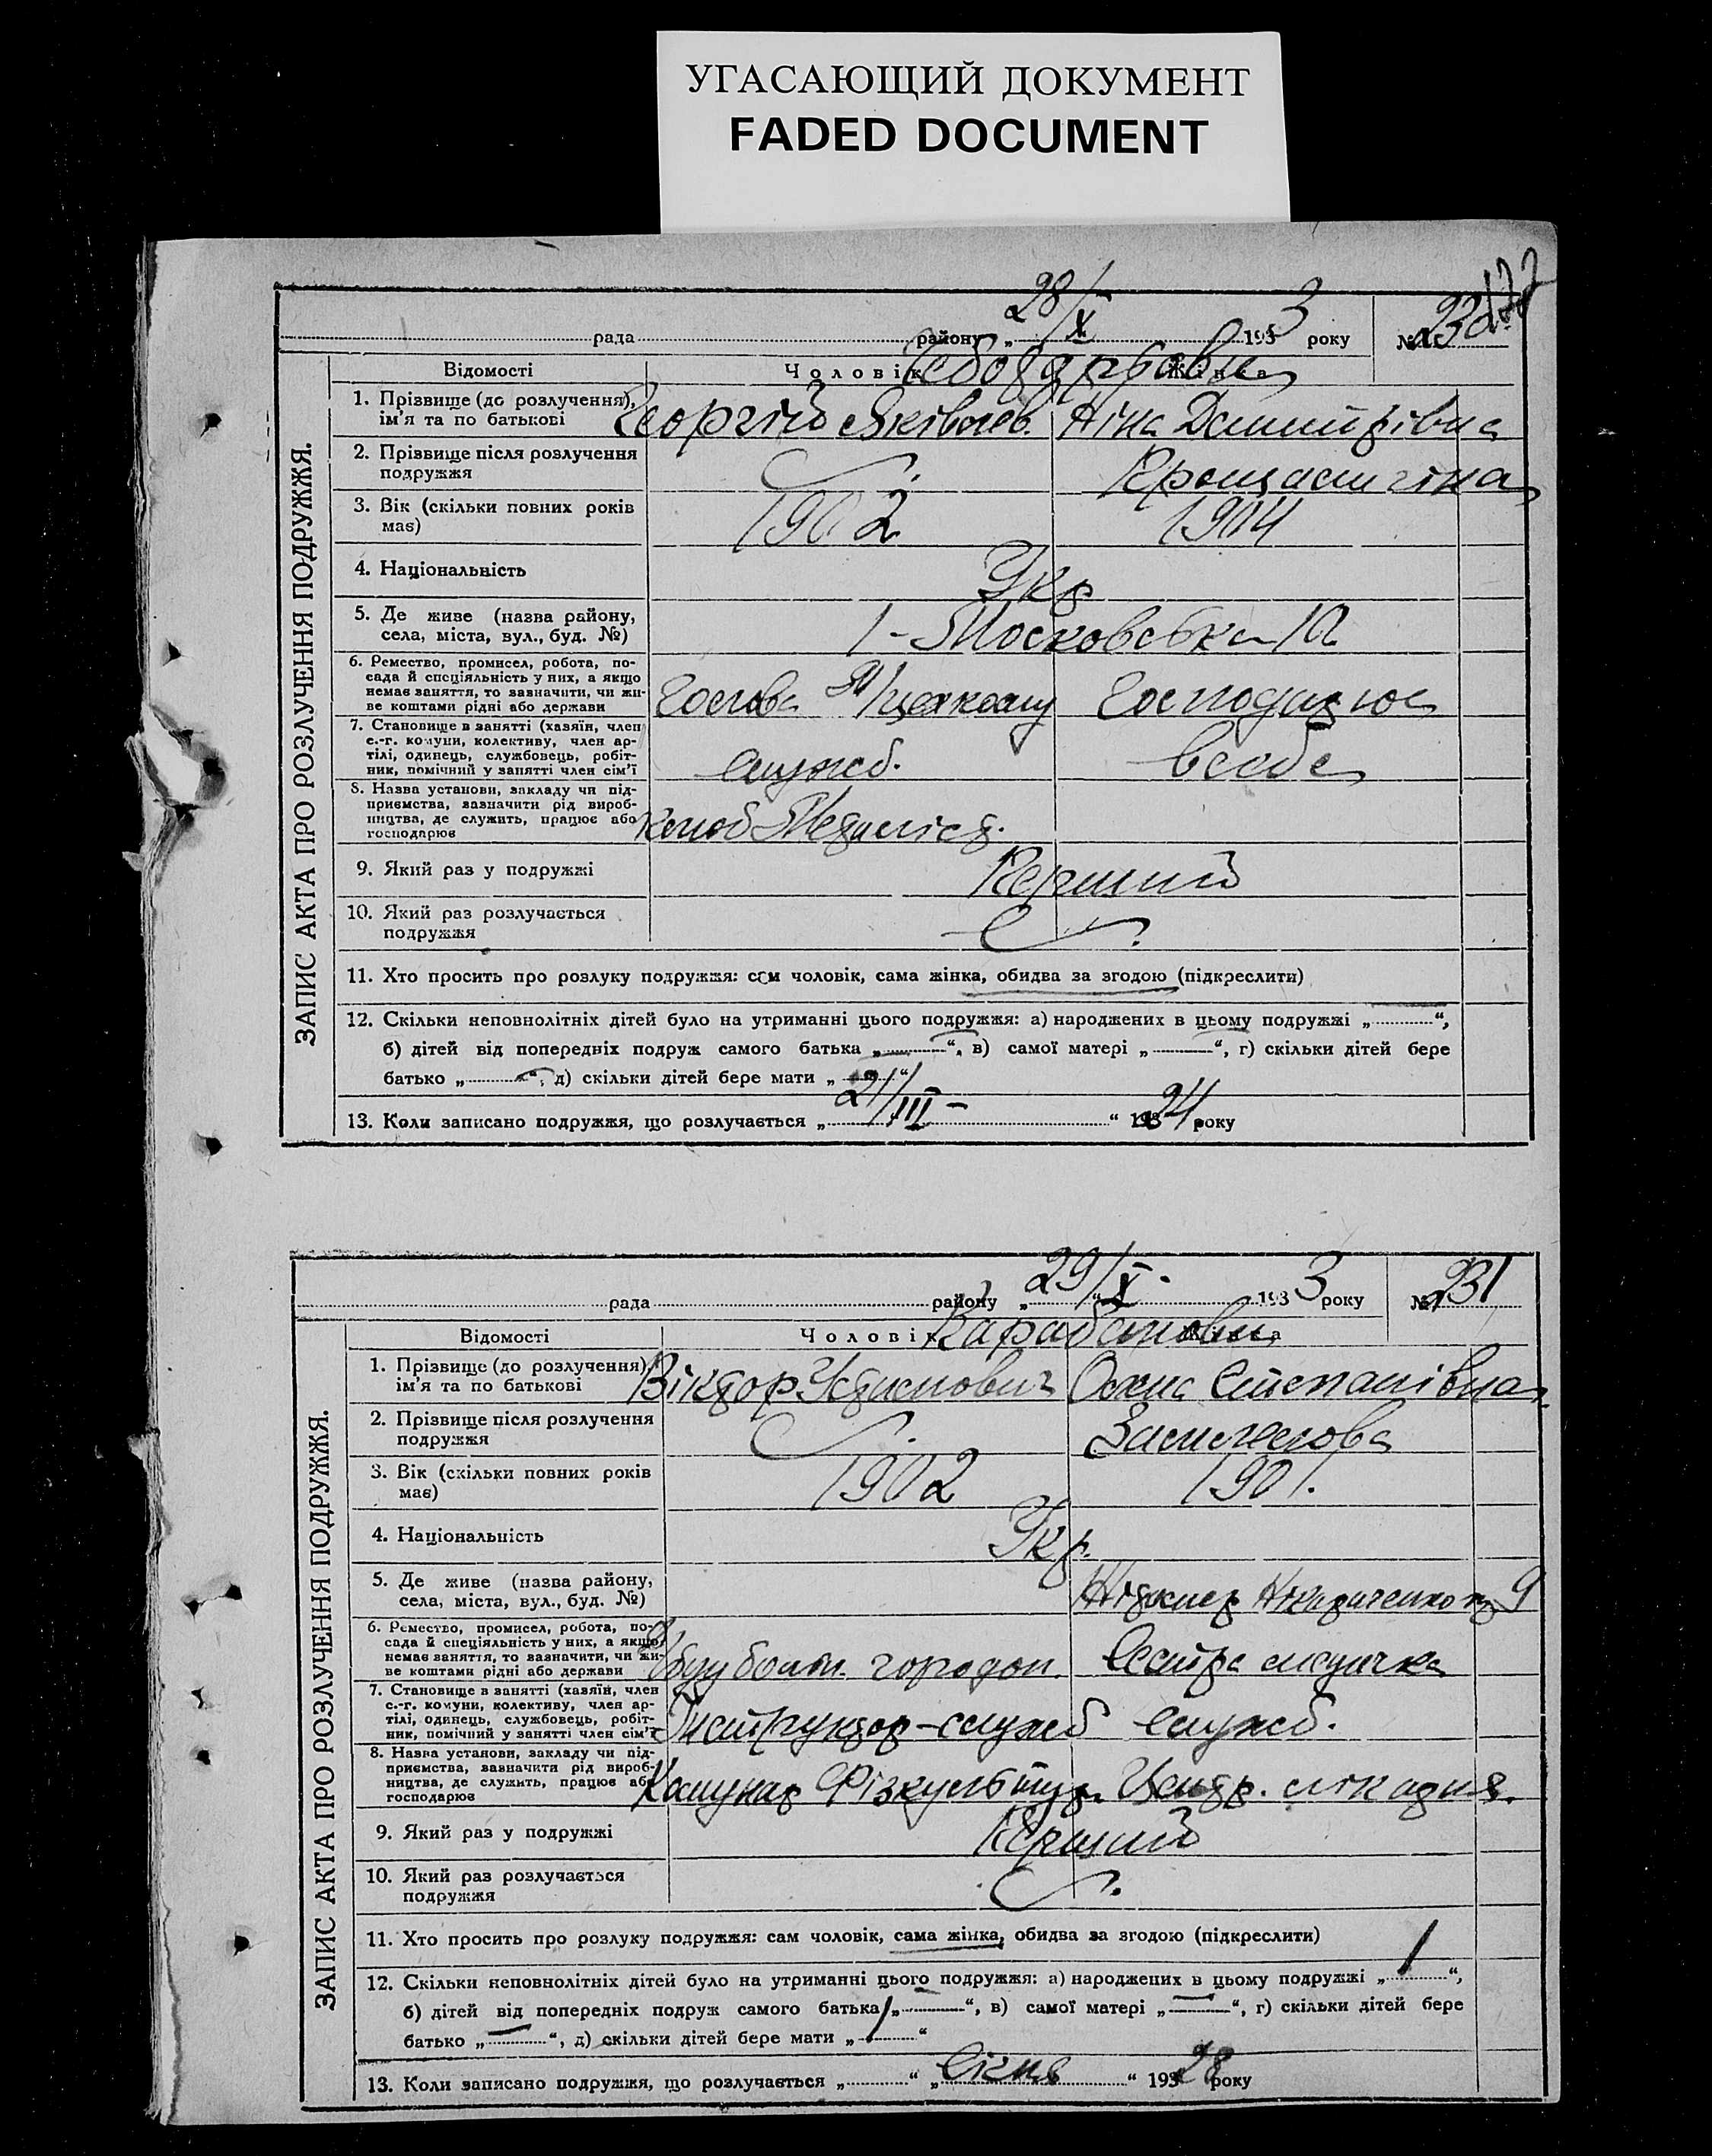 УГАСАЮЩИЙ ДОКУМЕНТ
FADED DOCUMENT
ЗАПИС АКТА ПРО РОЗЛУЧЕННЯ ПОДРУЖЖЯ.
рада району „28/X 193 3 року №
Відомості Чоловік Жінка
1. Прізвище (до розлучення), ім'я та по батькові Георгій Яківлев. Ніна Дмитрівна
2. Прізвище після розлучення подружжя
3. Вік (скільки повних років має) 1902 1904
4. Національність Укр
5. Де живе (назва району, села, міста, вул., буд. №) 1-Московська
6. Ремество, промисел, робота, по-
сада й спеціяльність у них, а якщо
немає заняття, то зазначити, чи жи-
ве коштами рідні або держави Голова М/цехкому Господарює
7. Становище в занятті (хазяїн, член
с.-г. комуни, колективу, член ар-
тілі, одинець, службовець, робіт-
ник, помічний у занятті член сім'ї служб. в себе
8. Назва установи, закладу чи під-
приємства, зазначити рід вироб-
ництва, де служить, працює або
господарює
9. Який раз у подружжі Перший
10. Який раз розлучається подружжя
11. Хто просить про розлуку подружжя: сам чоловік, сама жінка, обидва за згодою (підкреслити)
12. Скільки неповнолітніх дітей було на утриманні цього подружжя: а) народжених в цьому подружжі „ “,
б) дітей від попередніх подруж самого батька „ “, в) самої матері „ “, г) скільки дітей бере
батько „ “, д) скільки дітей бере мати „ “
13. Коли записано подружжя, що розлучається „21/III- “ 193 24 року
ЗАПИС АКТА ПРО РОЗЛУЧЕННЯ ПОДРУЖЖЯ.
рада району „29/X. 193 3 року № 231
Відомості Чоловік Жінка
Карабанови
1. Прізвище (до розлучення), ім'я та по батькові Віктор Устинович Ганна Степанівна
2. Прізвище після розлучення подружжя
3. Вік (скільки повних років має) 1902 1901.
4. Національність Укр.
5. Де живе (назва району, села, міста, вул., буд. №) 9
6. Ремество, промисел, робота, по-
сада й спеціяльність у них, а якщо
немає заняття, то зазначити, чи жи-
ве коштами рідні або держави Сестра медичка
7. Становище в занятті (хазяїн, член
с.-г. комуни, колективу, член ар-
тілі, одинець, службовець, робіт-
ник, помічний у занятті член сім'ї Інструктор-служб служб.
8. Назва установи, закладу чи під-
приємства, зазначити рід вироб-
ництва, де служить, працює або
господарює Фізкультур. Центр. лікарня.
9. Який раз у подружжі Перший
10. Який раз розлучається подружжя
11. Хто просить про розлуку подружжя: сам чоловік, сама жінка, обидва за згодою (підкреслити)
12. Скільки неповнолітніх дітей було на утриманні цього подружжя: а) народжених в цьому подружжі „1“,
б) дітей від попередніх подруж самого батька „ “, в) самої матері „ “, г) скільки дітей бере
батько „ “, д) скільки дітей бере мати „1“
13. Коли записано подружжя, що розлучається „ “ „Січня“ 193 28 року